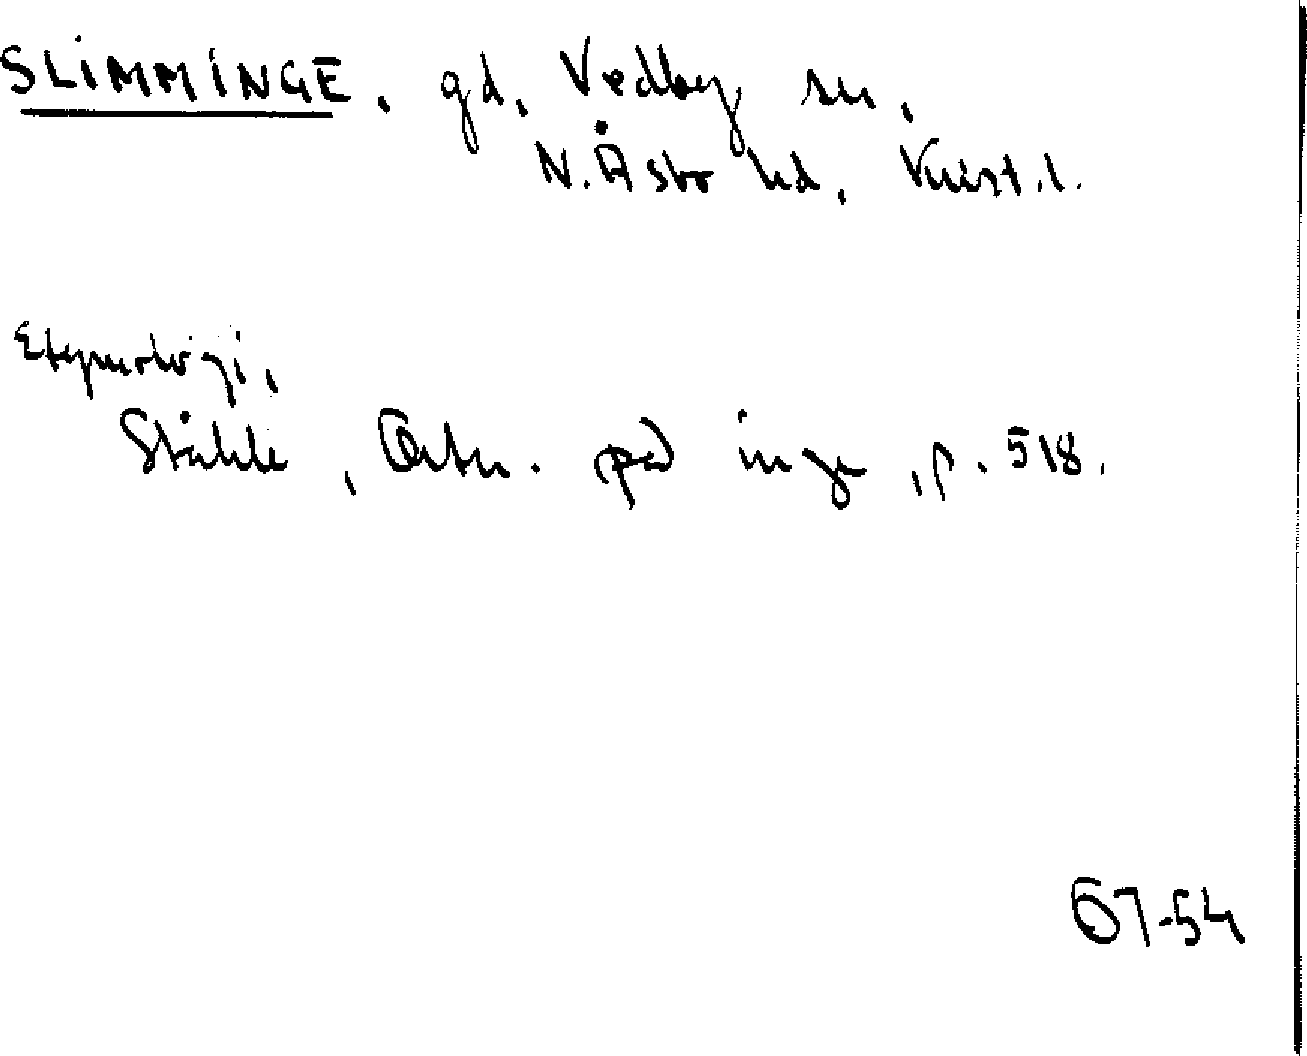 SLIMMINGE, gd, Vedby sn,
N. Åsbo hd, Krist. l.
Etymologi,
Ståhle, Ortn. på inge, p. 518.
67-54